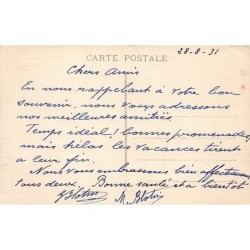 28-8-31
CARTE POSTALE
Chers Amis
En nous rappelant à votre bon
souvenir, nous vous adressons
nos meilleures amitiés.
Temps idéal! bonnes promenades,
mais hélas les vacances tirent
à leur fin.
Nous vous embrassons bien affectueusement
tous deux. Bonne santé et à bientôt